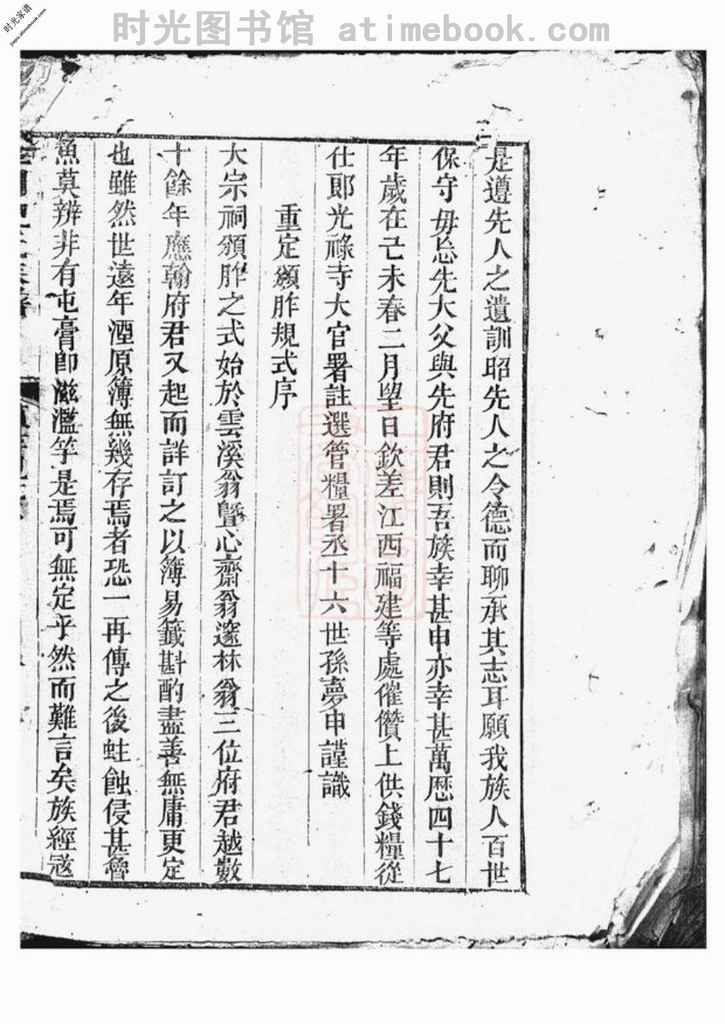 时光图书馆 atimebook.com
时光家谱
是遵先人之遺訓昭先人之令德而聊承其志耳願我族人百世
保守毋忘先大父與先府君則吾族幸甚申亦幸甚萬歷四十七
年歲在己未春二月望日欽差江西福建等處催儹上供錢糧從
仕郎光祿寺大官署註選管糧署丞十六世孫夢申謹識
重定頒胙規式序
大宗祠頒胙之式始於雲溪翁曁心齋翁邃林翁三位府君越數
十餘年應翰府君又起而詳訂之以簿易籤斟酌盡善無庸更定
也雖然世遠年湮原簿無幾存焉者恐一再傳之後蛀蝕侵甚魯
魚莫辨非有屯膏卽滋濫竽是焉可無定乎然而難言矣族經寇